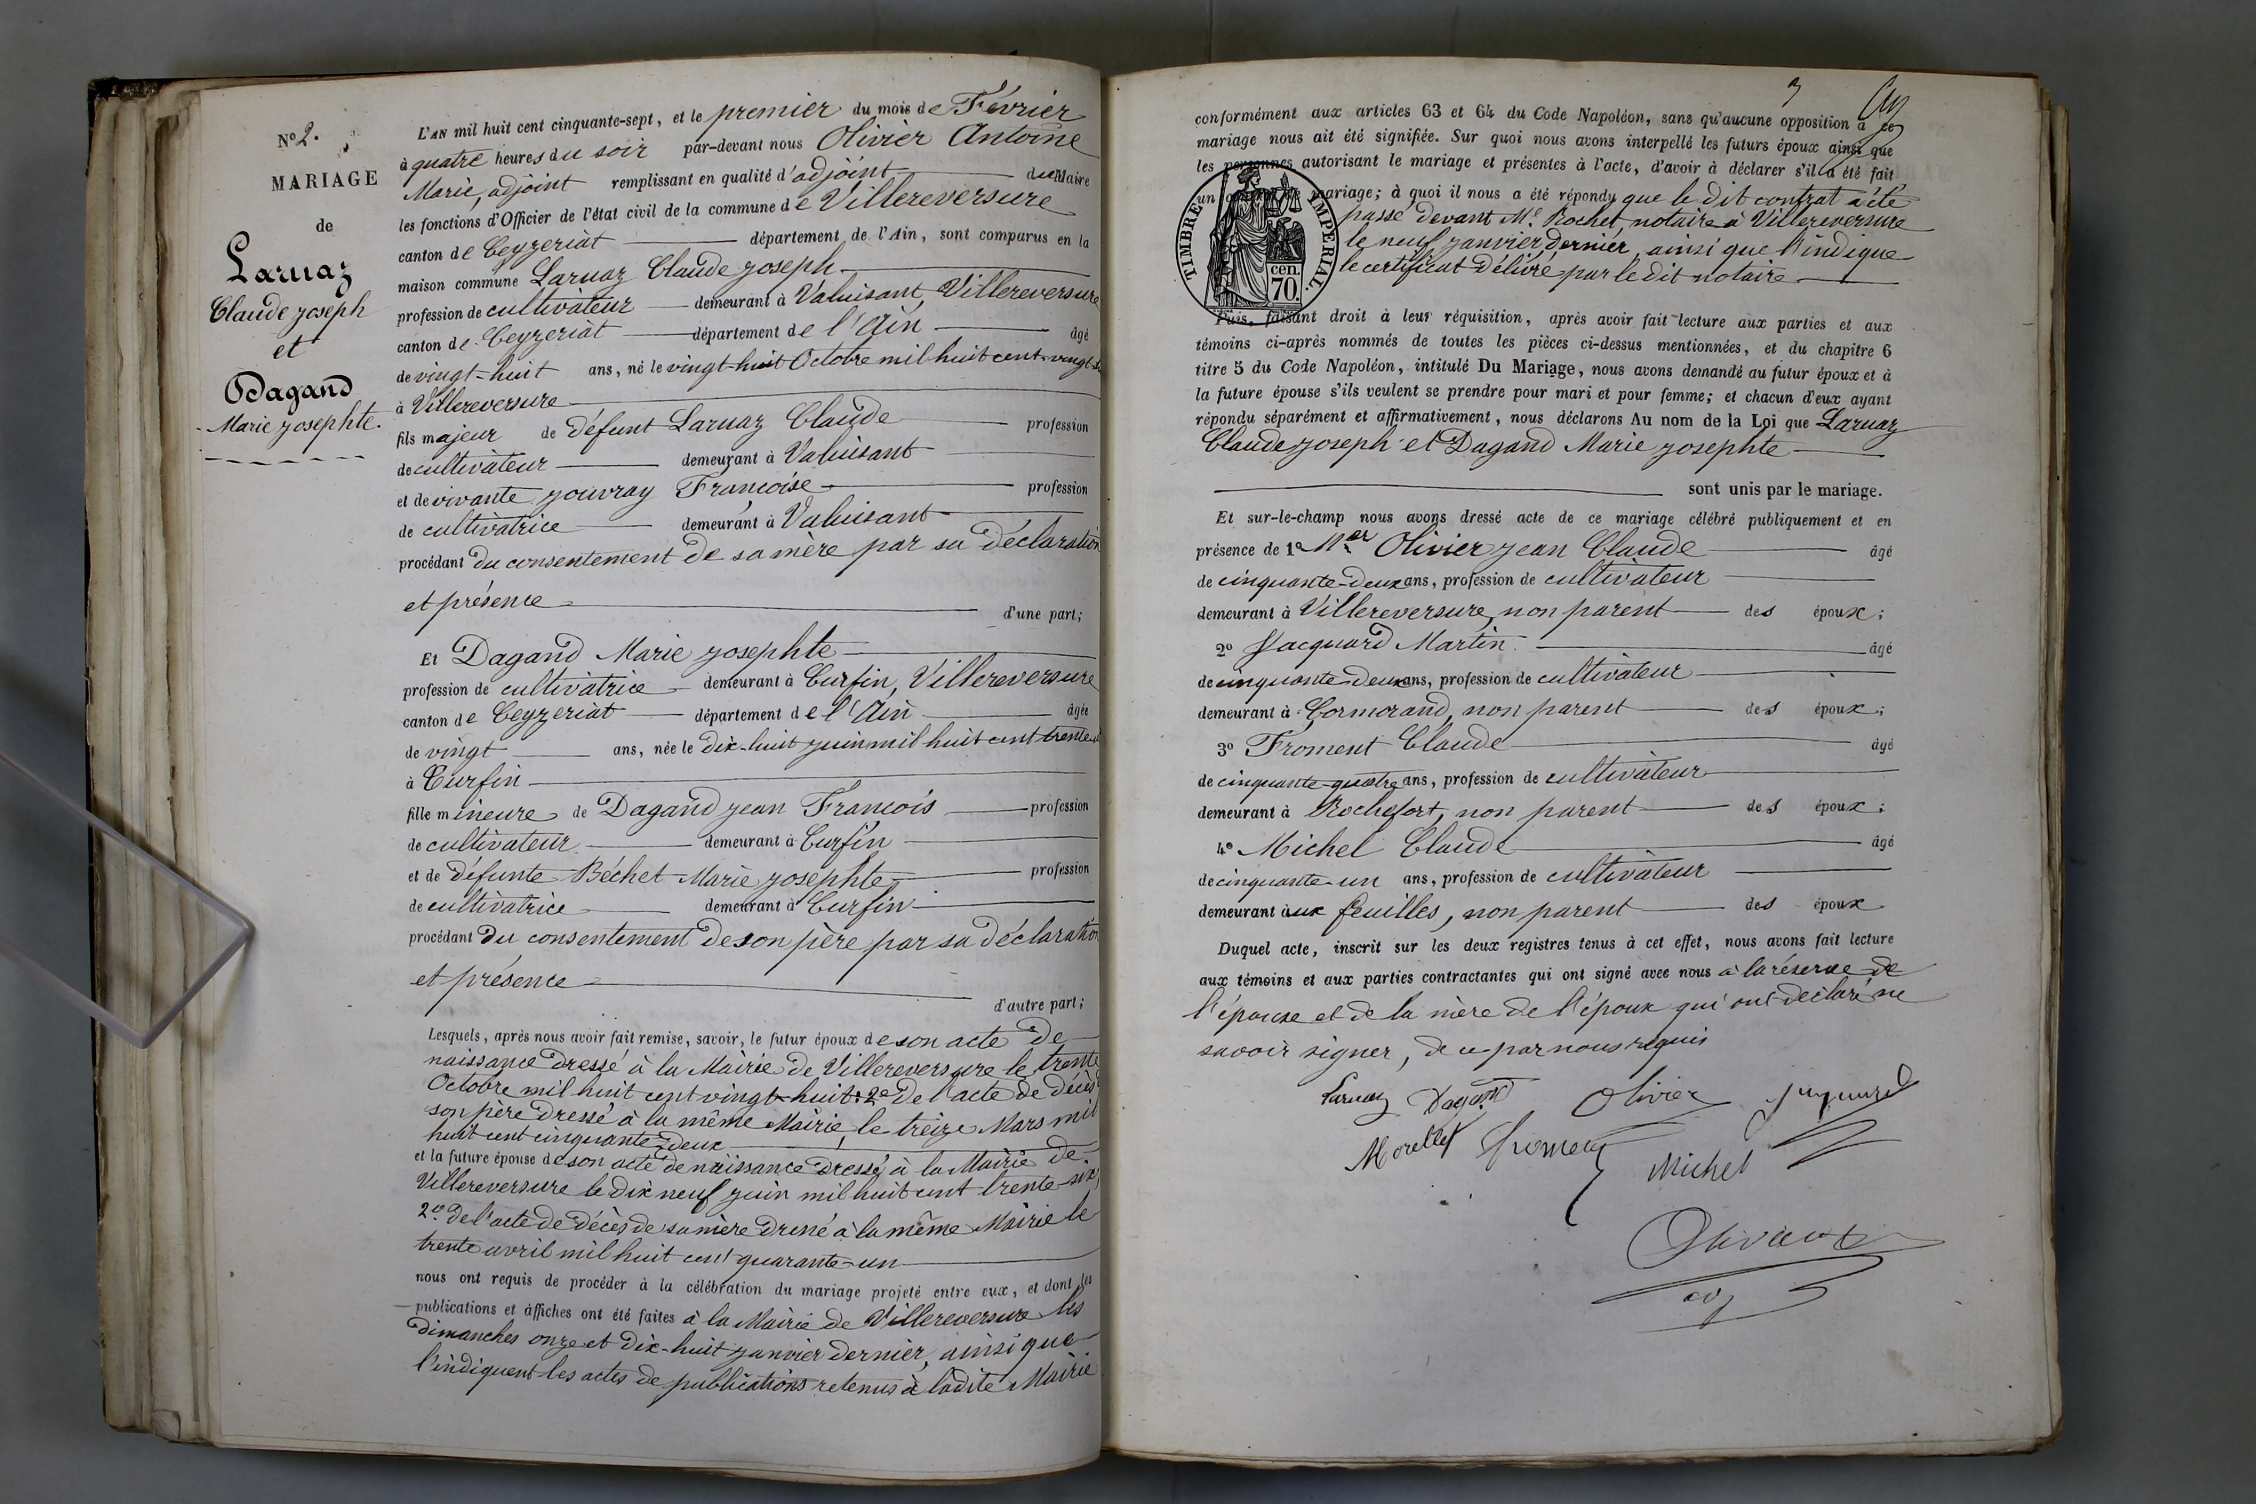 N° 2.
MARIAGE
de
Laruaz
Claude Joseph
et
Dagand
Marie Josephte.
L'AN mil huit cent cinquante-sept, et le premier du mois de Février
à quatre heures du soir par-devant nous Olivier Antoine
Marie, adjoint remplissant en qualité d'adjoint du Maire
les fonctions d'Officier de l'état civil de la commune de Villereversure
canton de Ceyzeriat département de l'Ain, sont comparus en la
maison commune Laruaz Claude Joseph
profession de cultivateur demeurant à Valuisant, Villereversure
canton de Ceyzeriat département de l'Ain âgé
de vingt-huit ans, né le vingt-huit Octobre mil huit cent vingt-
à Villereversure
fils majeur de défunt Laruaz Claude profession
de cultivateur demeurant à Valuisant
et de vivante Jouvray Francoise profession
de cultivatrice demeurant à Valuisant
procédant du consentement de sa mère par sa déclaration
et présence d'une part;
Et Dagand Marie Josephte
profession de cultivatrice demeurant à Curfin, Villereversure
canton de Ceyzeriat département de l'Ain âgée
de vingt ans, née le dix-huit Juin mil huit cent trente
à Curfin
fille mineure de Dagand Jean Francois profession
de cultivateur demeurant à Curfin
et de défunte Béchet Marie Josephte profession
de cultivatrice demeurant à Curfin
procédant du consentement de son père par sa déclaration
et présence
d'autre part;
Lesquels, après nous avoir fait remise, savoir, le futur époux de son acte de
naissance dressé à la Mairie de Villereversure le trente
Octobre mil huit cent vingt-huit: 2° de l'acte de décès
son père dressé à la même Mairie, le treize Mars mil
huit cent cinquante-deux
et la future épouse de son acte de naissance dressé à la Mairie de
Villereversure le dix neuf Juin mil huit cent trente-six,
2° de l'acte de décès de sa mère dressé à la même Mairie le
trente avril mil huit cent quarante-un
nous ont requis de procéder à la célébration du mariage projeté entre eux, et dont les
publications et affiches ont été faites à la Mairie de Villereversure les
dimanches onze et dix-huit Janvier dernier, ainsi que
l'indiquent les actes de publications retenus à ladite Mairie
3
conformément aux articles 63 et 64 du Code Napoléon, sans qu'aucune opposition à ce
mariage nous ait été signifiée. Sur quoi nous avons interpellé les futurs époux ainsi que
les personnes autorisant le mariage et présentes à l'acte, d'avoir à déclarer s'il a été fait
un mariage; à quoi il nous a été répondu que le dit contrat a été
passé devant Me Rochet, notaire à Villereversure
le neuf Janvier dernier, ainsi que l'indique
le certificat délivré par le dit notaire
TIMBRE IMPERIAL.
cen.
70.
Puis, faisant droit à leur réquisition, après avoir fait lecture aux parties et aux
témoins ci-après nommés de toutes les pièces ci-dessus mentionnées, et du chapitre 6
titre 5 du Code Napoléon, intitulé Du Mariage, nous avons demandé au futur époux et à
la future épouse s'ils veulent se prendre pour mari et pour femme; et chacun d'eux ayant
répondu séparément et affirmativement, nous déclarons Au nom de la Loi que Laruaz
Claude Joseph et Dagand Marie Josephte
sont unis par le mariage.
Et sur-le-champ nous avons dressé acte de ce mariage célébré publiquement et en
présence de 1° Olivier Jean Claude âgé
de cinquante-deux ans, profession de cultivateur
demeurant à Villereversure, non parent des époux;
2° Jacquard Martin âgé
de cinquante-deux ans, profession de cultivateur
demeurant à Cormorand, non parent des époux;
3° Froment Claude âgé
de cinquante-quatre ans, profession de cultivateur
demeurant à Rochefort, non parent des époux;
4° Michel Claude âgé
de cinquante-un ans, profession de cultivateur
demeurant aux feuilles, non parent des époux
Duquel acte, inscrit sur les deux registres tenus à cet effet, nous avons fait lecture
aux témoins et aux parties contractantes qui ont signé avec nous à la réserve de
l'épouse et de la mère de l'époux qui ont déclaré ne
savoir signer, de ce par nous requis
Laruaz Dagand Olivier
Morellet Froment Michel
Olivier